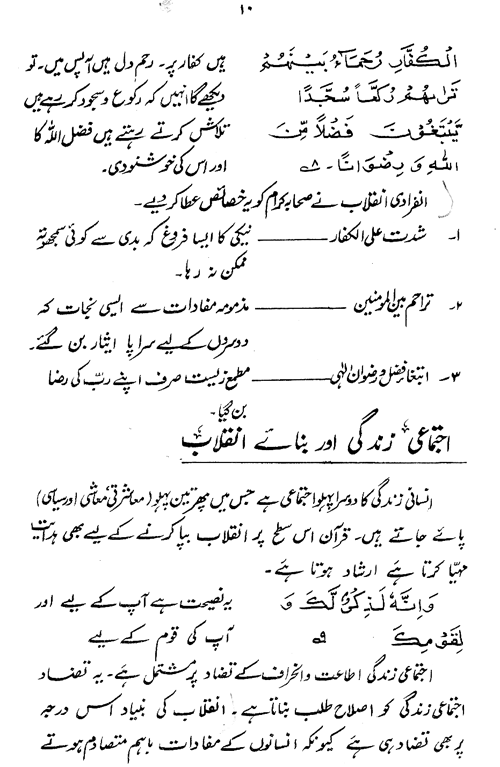 ۱۰
الْكُفَّارِ رُحَمَاءُ بَيْنَهُمْ
تَرٰىهُمْ رُكَّعًا سُجَّدًا
يَّبْتَغُوْنَ فَضْلًا مِّنَ
اللهِ وَ رِضْوَانًا۔ ۸ٖ
ہیں کفار پر۔ رحم دل ہیں آپس میں۔ تو
دیکھے گا انہیں کہ رکوع و سجود کر رہے ہیں
تلاش کرتے رہتے ہیں فضل اللہ کا
اور اس کی خوشنودی۔
انفرادی انقلاب نے صحابہ کرام کو یہ خصائص عطا کر دیے۔
۱۔ شدت علی الکفار ——— نیکی کا ایسا فروغ کہ بدی سے کوئی سمجھوتہ
ممکن نہ رہا۔
۲۔ تراحم بین المومنین ——— مذمومہ مفادات سے ایسی نجات کہ
دوسروں کے لیے سراپا ایثار بن گئے۔
۳۔ ابتغا فضل و رضوان الٰہی ——— مطمع زیست صرف اپنے ربّ کی رضا
بن گیا۔
اجتماعی زندگی اور بنائے انقلاب
انسانی زندگی کا دوسرا پہلو اجتماعی ہے جس میں پھر تین پہلو (معاشرتی معاشی اور سیاسی)
پائے جاتے ہیں۔ قرآن اس سطح پر انقلاب بپا کرنے کے لیے بھی ہدایت
مہیا کرتا ہے ارشاد ہوتا ہے۔
وَ اِنَّهٗ لَذِكْرٌ لَّكَ وَ
لِقَوْمِكَ ۹ٖ
یہ نصیحت ہے آپ کے لیے اور
آپ کی قوم کے لیے
اجتماعی زندگی اطاعت و انحراف کے تضاد پر مشتمل ہے۔ یہ تضاد
اجتماعی زندگی کو اصلاح طلب بناتا ہے۔ انقلاب کی بنیاد اس درجہ
پر بھی تضاد ہی ہے کیونکہ انسانوں کے مفادات باہم متصادم ہوتے